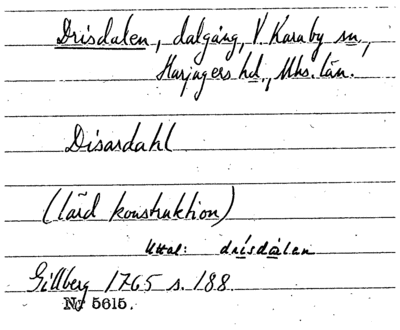 Drisdalen, dalgång, V. Karaby sn,
Harjagers hd., Mhs. län.
Disardahl
(lärd konstruktion)
Uttal: drísdàlen
Gillberg 1765 s. 188.
No 5615.